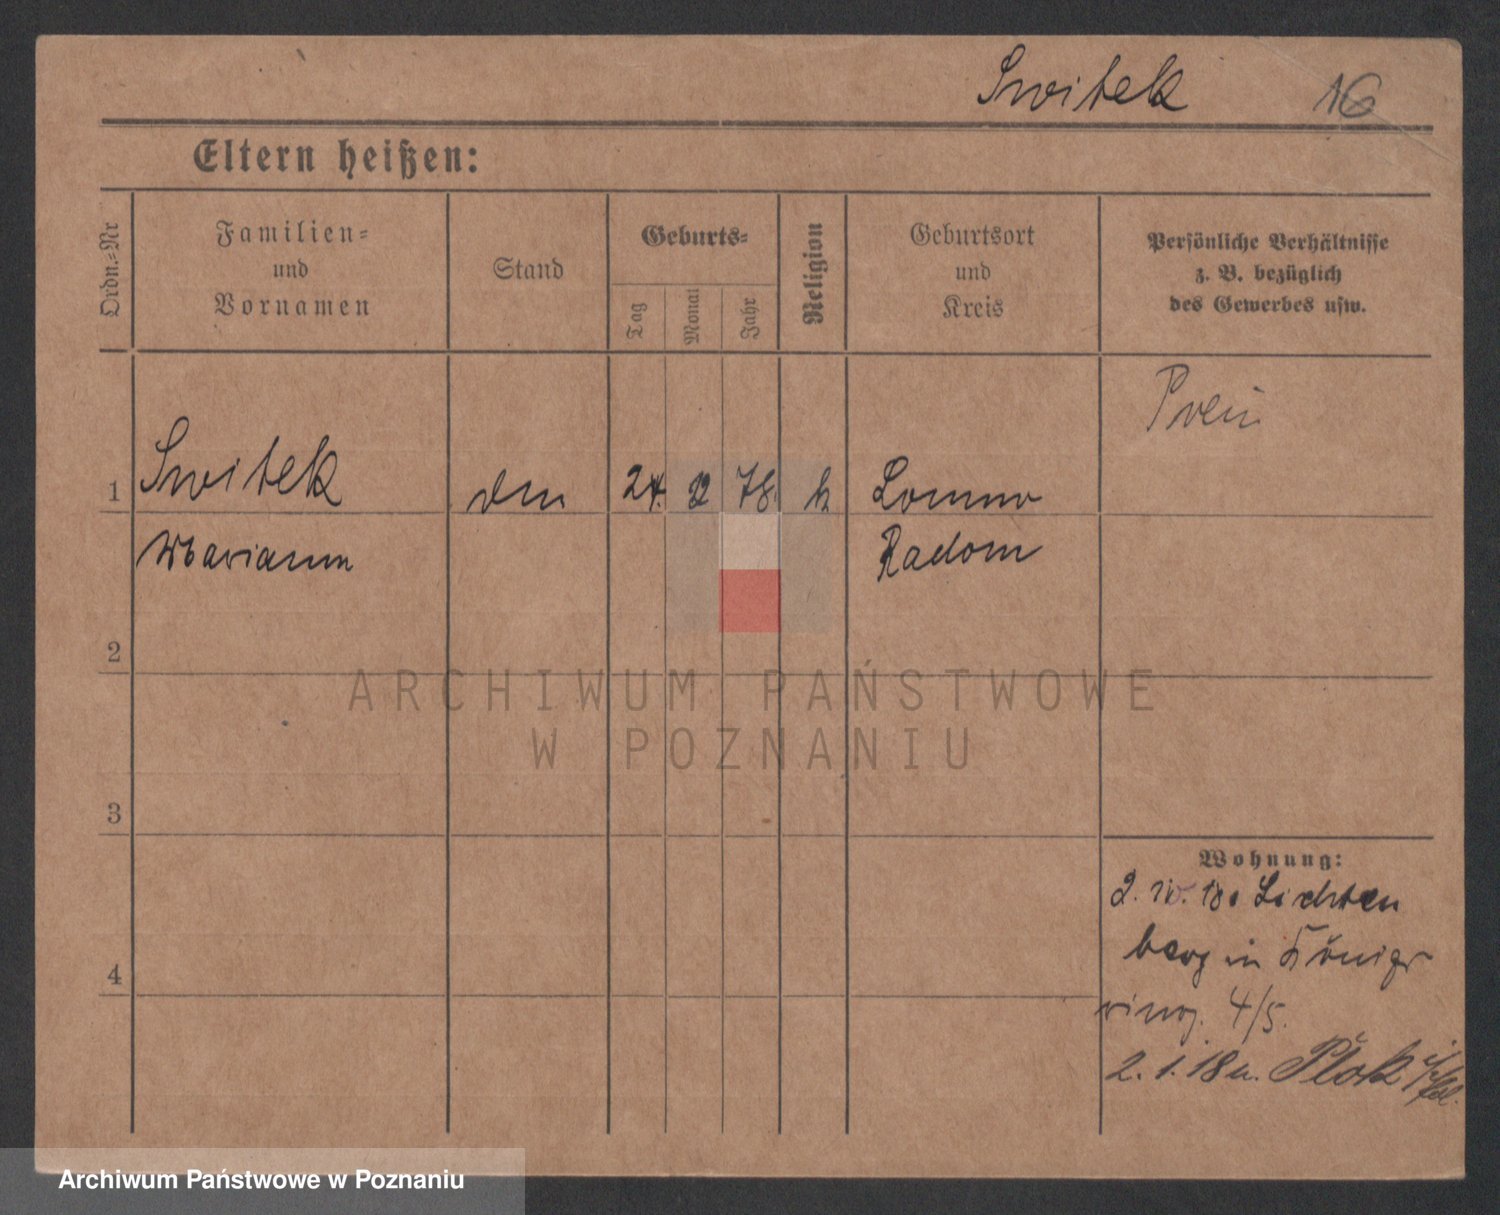 Switek 16
Eltern heißen:
Ordn.-Nr
Familien-
und
Vornamen
Stand
Geburts-
Tag
Monat
Jahr
Religion
Geburtsort
und
Kreis
Persönliche Verhältnisse
z. B. bezüglich
des Gewerbes usw.
1 Switek 24. 12 78. k Lomno
Mariann Radom
2
3
4
Wohnung:
2. Lichten
berg in Königs
4/5.
2. 1. 18
ARCHIWUM PAŃSTWOWE
W POZNANIU
Archiwum Państwowe w Poznaniu